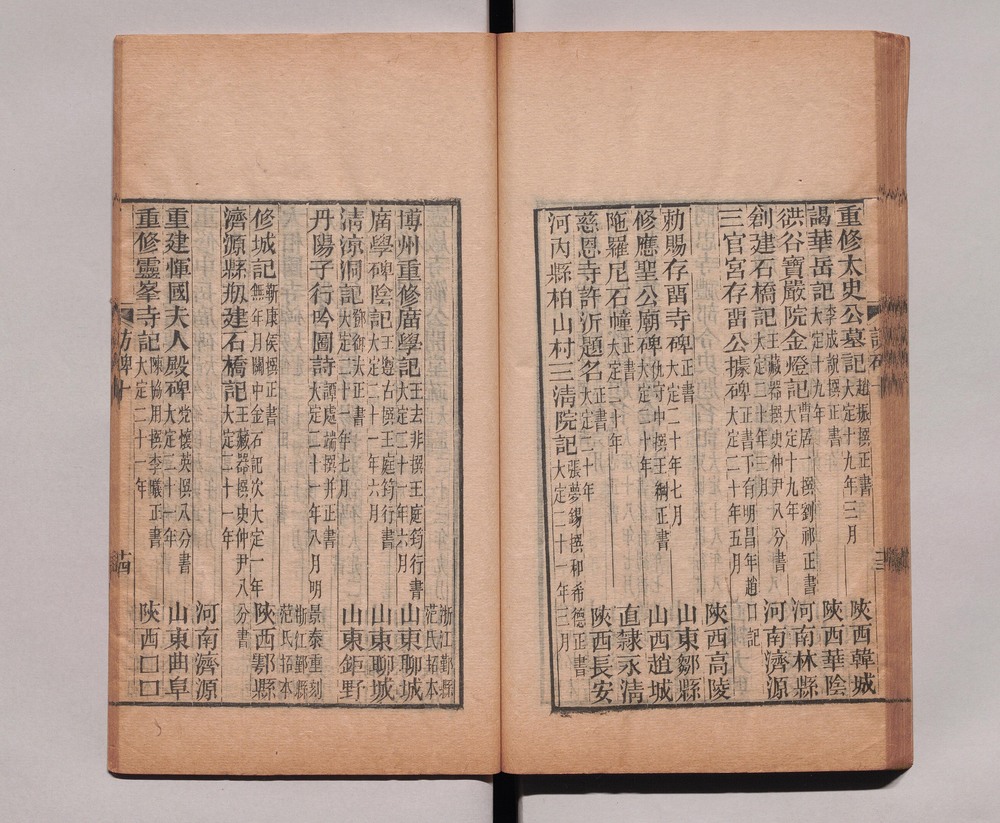 重修太史公墓記 趙振撰正書 大定十九年三月 陝西韓城
謁華岳記 李成說撰正書 大定十九年 陝西華陰
谼谷寶嚴院金燈記 曹居一撰劉祁正書 大定十九年 河南林縣
創建石橋記 王藏器撰史仲尹八分書 大定二十年三月 河南濟源
三官宮存畱公據碑 正書下有明昌年趙口記 大定二十年五月 陝西高陵
勅賜存畱寺碑 正書 大定二十年七月 山東鄒縣
修應聖公廟碑 仇守中撰王綱正書 大定二十年 山西趙城
陁羅尼石幢 正書 大定二十年 直隸永清
慈恩寺許沂題名 正書 大定二十年 陝西長安
河內縣柏山村三淸院記 張夢錫撰和希德正書 大定二十一年三月
浙江鄞縣范氏拓本
博州重修廟學記 王去非撰王庭筠行書 大定二十一年六月 山東聊城
廟學碑陰記 王遵古撰王庭筠行書 大定二十一年六月 山東聊城
淸涼洞記 正書 大定二十一年七月 山東鉅野
丹陽子行吟圖詩 譚處端撰并正書 大定二十一年八月明景泰重刻 浙江鄞縣范氏拓本
修城記 靳康侯撰正書 無年月關中金石記次大定一年 陝西鄠縣
濟源縣刱建石橋記 王藏器撰史仲尹八分書 大定二十一年 河南濟源
重建惲國夫人殿碑 党懷英撰八分書 大定二十一年 山東曲阜
重修靈峯寺記 陳協用撰李曦正書 大定二十一年 陝西口口
訪碑十